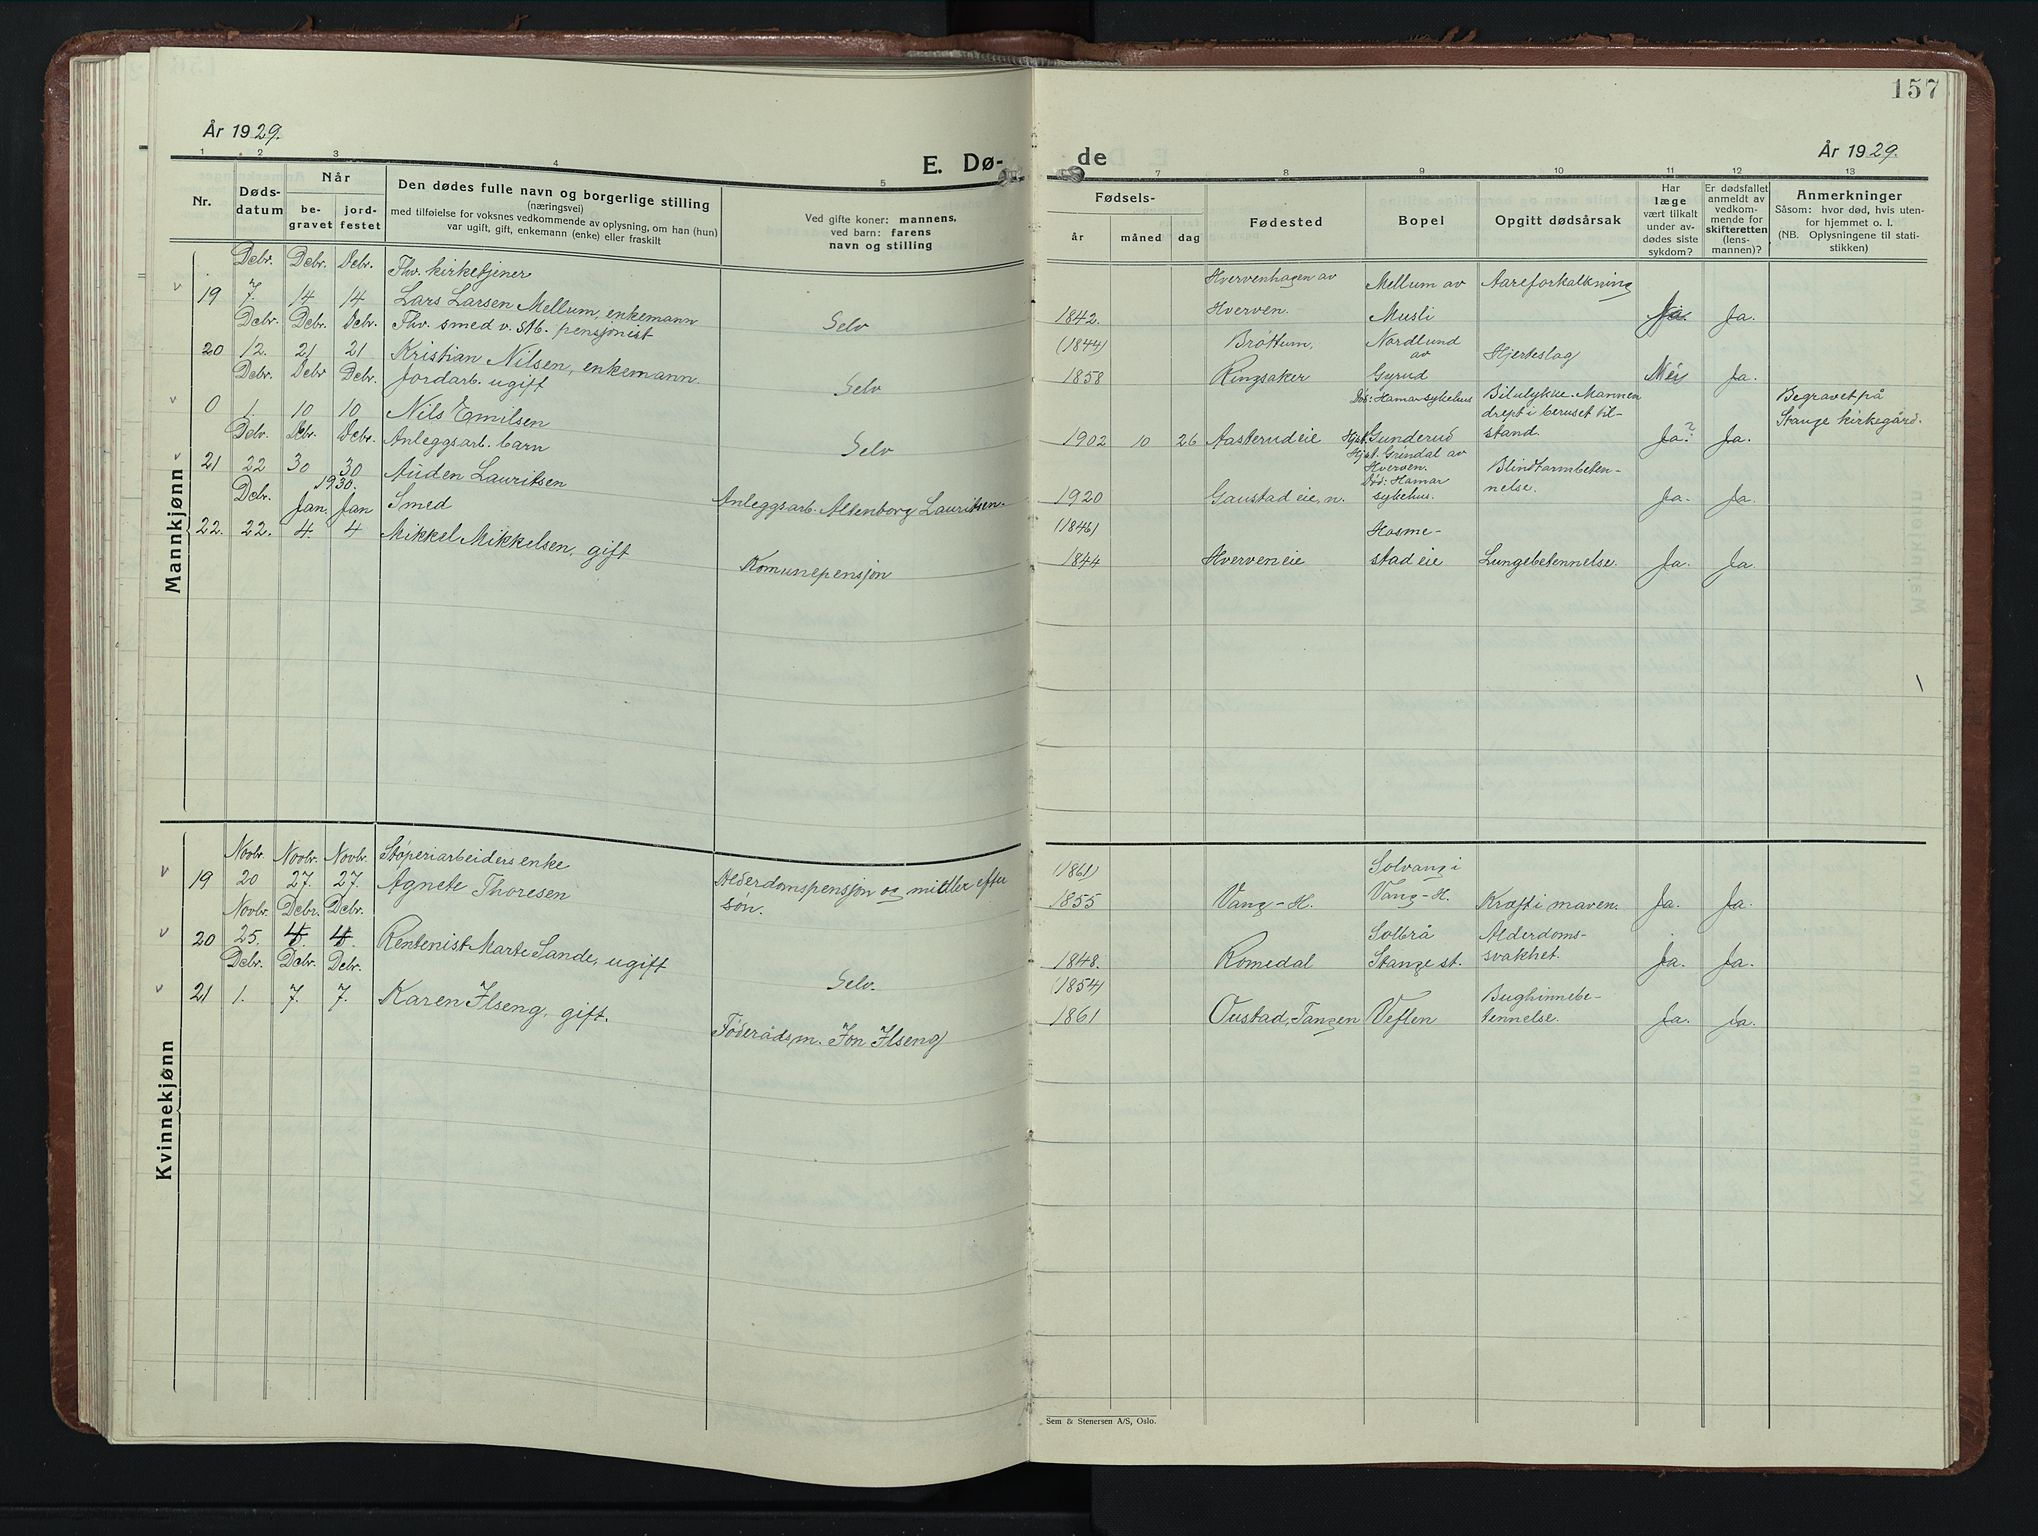 157
År 1929.
År 1929.
E. Dø-
de
1 2 3 4 5
7 8 9 10 11 12 13
Nr.
Døds-
datum
Når
be-
gravet
jord-
festet
Den dødes fulle navn og borgerlige stilling
(næringsvei)
med tilføielse for voksnes vedkommende av oplysning, om han (hun)
var ugift, gift, enkemann (enke) eller fraskilt
Ved gifte koner: mannens,
ved barn: farens
navn og stilling
Fødsels-
år måned dag
Fødested
Bopel
Opgitt dødsårsak
Har
læge
vært tilkalt
under av-
dødes siste
sykdom?
Er dødsfallet
anmeldt av
vedkom-
mende for
skifteretten
(lens-
mannen)?
Anmerkninger
Såsom: hvor død, hvis uten-
for hjemmet o. l.
(NB. Oplysningene til stati-
stikken)
Mannkjønn
Debr. Debr. Debr. Fhv. kirketjener Hvervenhagen av Mellum av Aareforkalkning
19 7. 14 14 Lars Larsen Mellum, enkemann Selv 1842. Hverven. Musli Ja. Ja.
Debr. Debr. Debr. Fhv. smed v. Stb. pensjonist (1844) Brøttum, Nordlund av Hjerteslag
20 12. 21 21 Kristian Nilsen, enkemann. Selv 1858 Ringsaker Gyrud Nei Ja.
Debr. Debr Debr. Jordarb. ugift Død: Hamar sykehus Bilulykke. Mannen Begravet på
drept i beruset til- Stange kirkegård.
0 1. 10 10 Nils Emilsen Selv 1902 10 26 Aasterudeie Hjst. Gunderud stand. Ja? Ja.
Debr. Debr. Debr. Anleggsarb. barn Hjst. Grindal av
Hverven. Blindtarmbeten-
Død: Hamar
21 22 30 30 Auden Lauritsen Anleggsarb. Altenborg Lauritsen. 1920 Gaustadeie, n. sykehus. nelse. Ja. Ja.
1930.
Debr. Jan. Jan Smed (1846) Hosme-
22. 22. 4. 4 Mikkel Mikkelsen, gift Komunepensjon 1844 Hverveneie stadeie Lungebetennelse. Ja. Ja.
Kvinnekjønn
Novbr. Novbr. Novbr. Støperiarbeiders enke (1861) Solvang i
19 20 27. 27. Agnete Thoresen Alderdomspensjon og midler efter
søn. 1855 Vang-H. Vang-H. Kræft i maven. Ja. Ja.
Novbr. Debr. Debr. Solbrå Alderdoms-
20 25. 4. 4. Rentenist Marte Sande, ugift Selv. 1848. Romedal Stange st. svakhet. Ja. Ja.
Debr. Debr. Debr. (1854) Bughinnebe-
21 1. 7. 7. Karen Ilseng, gift. Føderådsm. Jon Ilseng 1861 Oustad, Tangen Veflen tennelse. Ja. Ja.
Sem & Stenersen A/S, Oslo.